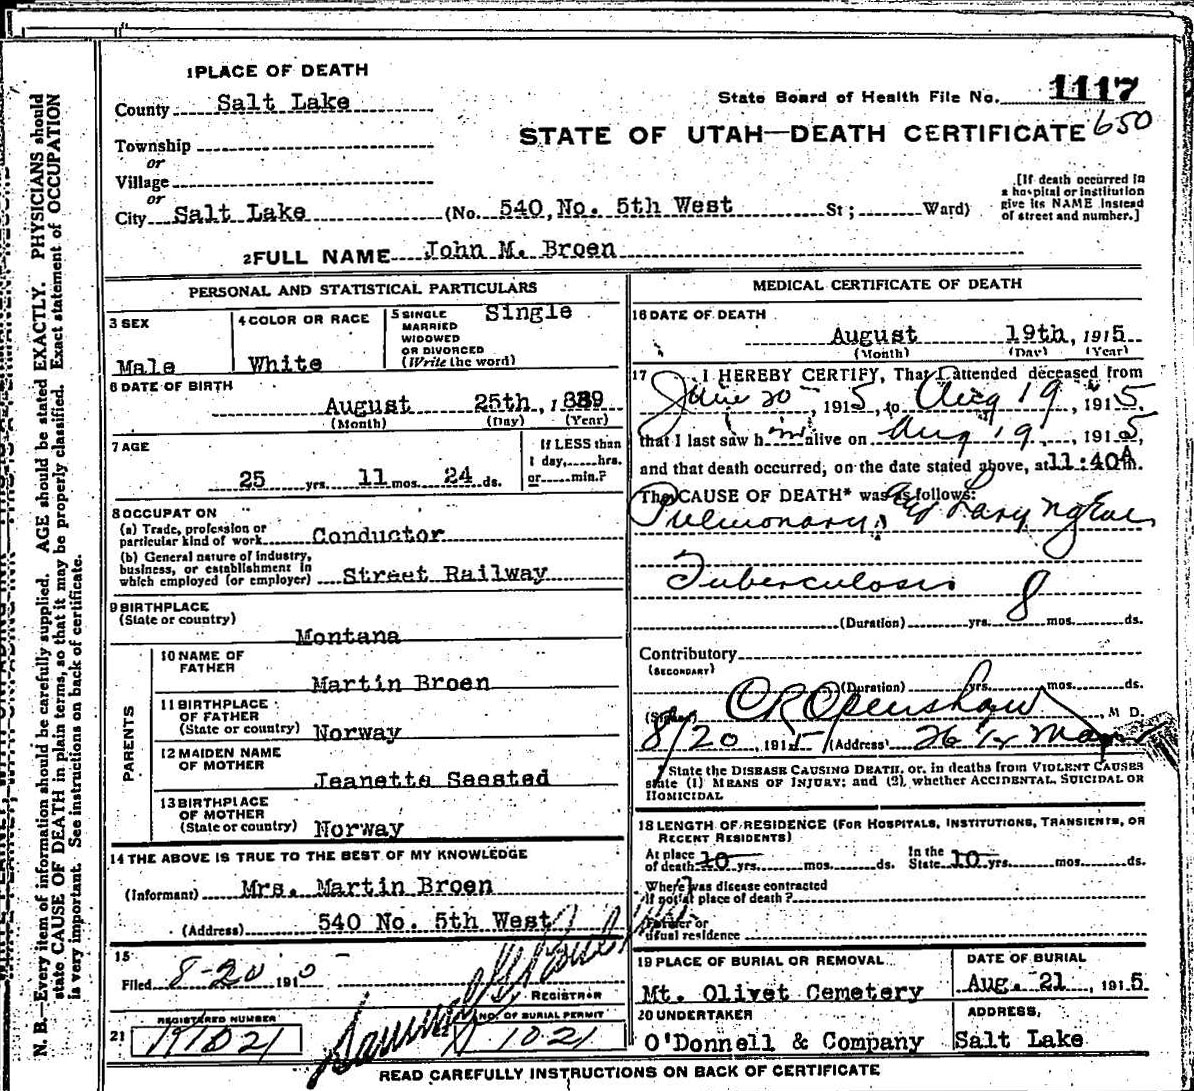 1 PLACE OF DEATH
County Salt Lake
State Board of Health File No. 1117
STATE OF UTAH—DEATH CERTIFICATE 650
Township
or
Village
or
City Salt Lake (No. 540, No. 5th West St; Ward)
[If death occurred in
a hospital or institution
give its NAME instead
of street and number.]
2 FULL NAME John M. Broen
PERSONAL AND STATISTICAL PARTICULARS
3 SEX
Male
4 COLOR OR RACE
White
5 SINGLE
MARRIED
WIDOWED
OR DIVORCED
(Write the word)
Single
6 DATE OF BIRTH
August 25th, 1889
(Month) (Day) (Year)
7 AGE
25 yrs. 11 mos. 24 ds.
If LESS than
1 day, hrs.
or min.?
8 OCCUPATION
(a) Trade, profession or
particular kind of work Conductor
(b) General nature of industry,
business, or establishment in
which employed (or employer) Street Railway
9 BIRTHPLACE
(State or country)
Montana
PARENTS
10 NAME OF
FATHER
Martin Broen
11 BIRTHPLACE
OF FATHER
(State or country) Norway
12 MAIDEN NAME
OF MOTHER
Jeanette Seested
13 BIRTHPLACE
OF MOTHER
(State or country) Norway
14 THE ABOVE IS TRUE TO THE BEST OF MY KNOWLEDGE
(Informant) Mrs. Martin Broen
(Address) 540 No. 5th West
15
Filed 8-20 191
REGISTRAR
21 REGISTERED NUMBER
22 NO. OF BURIAL PERMIT
1021
MEDICAL CERTIFICATE OF DEATH
16 DATE OF DEATH
August 19th, 1915
(Month) (Day) (Year)
17 I HEREBY CERTIFY, That I attended deceased from
June 20, 1915, to Aug 19, 1915.
that I last saw him alive on Aug 19, 1915,
and that death occurred, on the date stated above, at 11:40 A m.
The CAUSE OF DEATH* was as follows:
Pulmonary and Laryngeal
Tuberculosis
(Duration) yrs. 8 mos. ds.
Contributory
(SECONDARY)
(Duration) yrs. mos. ds.
(Signed) C R Openshaw, M D.
8/20, 1915 (Address)
State the DISEASE CAUSING DEATH, or, in deaths from VIOLENT CAUSES
state (1) MEANS OF INJURY; and (2), whether ACCIDENTAL, SUICIDAL OR
HOMICIDAL
18 LENGTH OF RESIDENCE (FOR HOSPITALS, INSTITUTIONS, TRANSIENTS, OR
RECENT RESIDENTS)
At place
of death 10 yrs. mos. ds. In the
State 10 yrs. mos. ds.
Where was disease contracted
if not at place of death?
Former or
usual residence
19 PLACE OF BURIAL OR REMOVAL
Mt. Olivet Cemetery
DATE OF BURIAL
Aug. 21, 1915
20 UNDERTAKER
O'Donnell & Company
ADDRESS,
Salt Lake
READ CAREFULLY INSTRUCTIONS ON BACK OF CERTIFICATE
N. B.—Every item of information should be carefully supplied. AGE should be stated EXACTLY. PHYSICIANS should
state CAUSE OF DEATH in plain terms, so that it may be properly classified. Exact statement of OCCUPATION
is very important. See instructions on back of certificate.